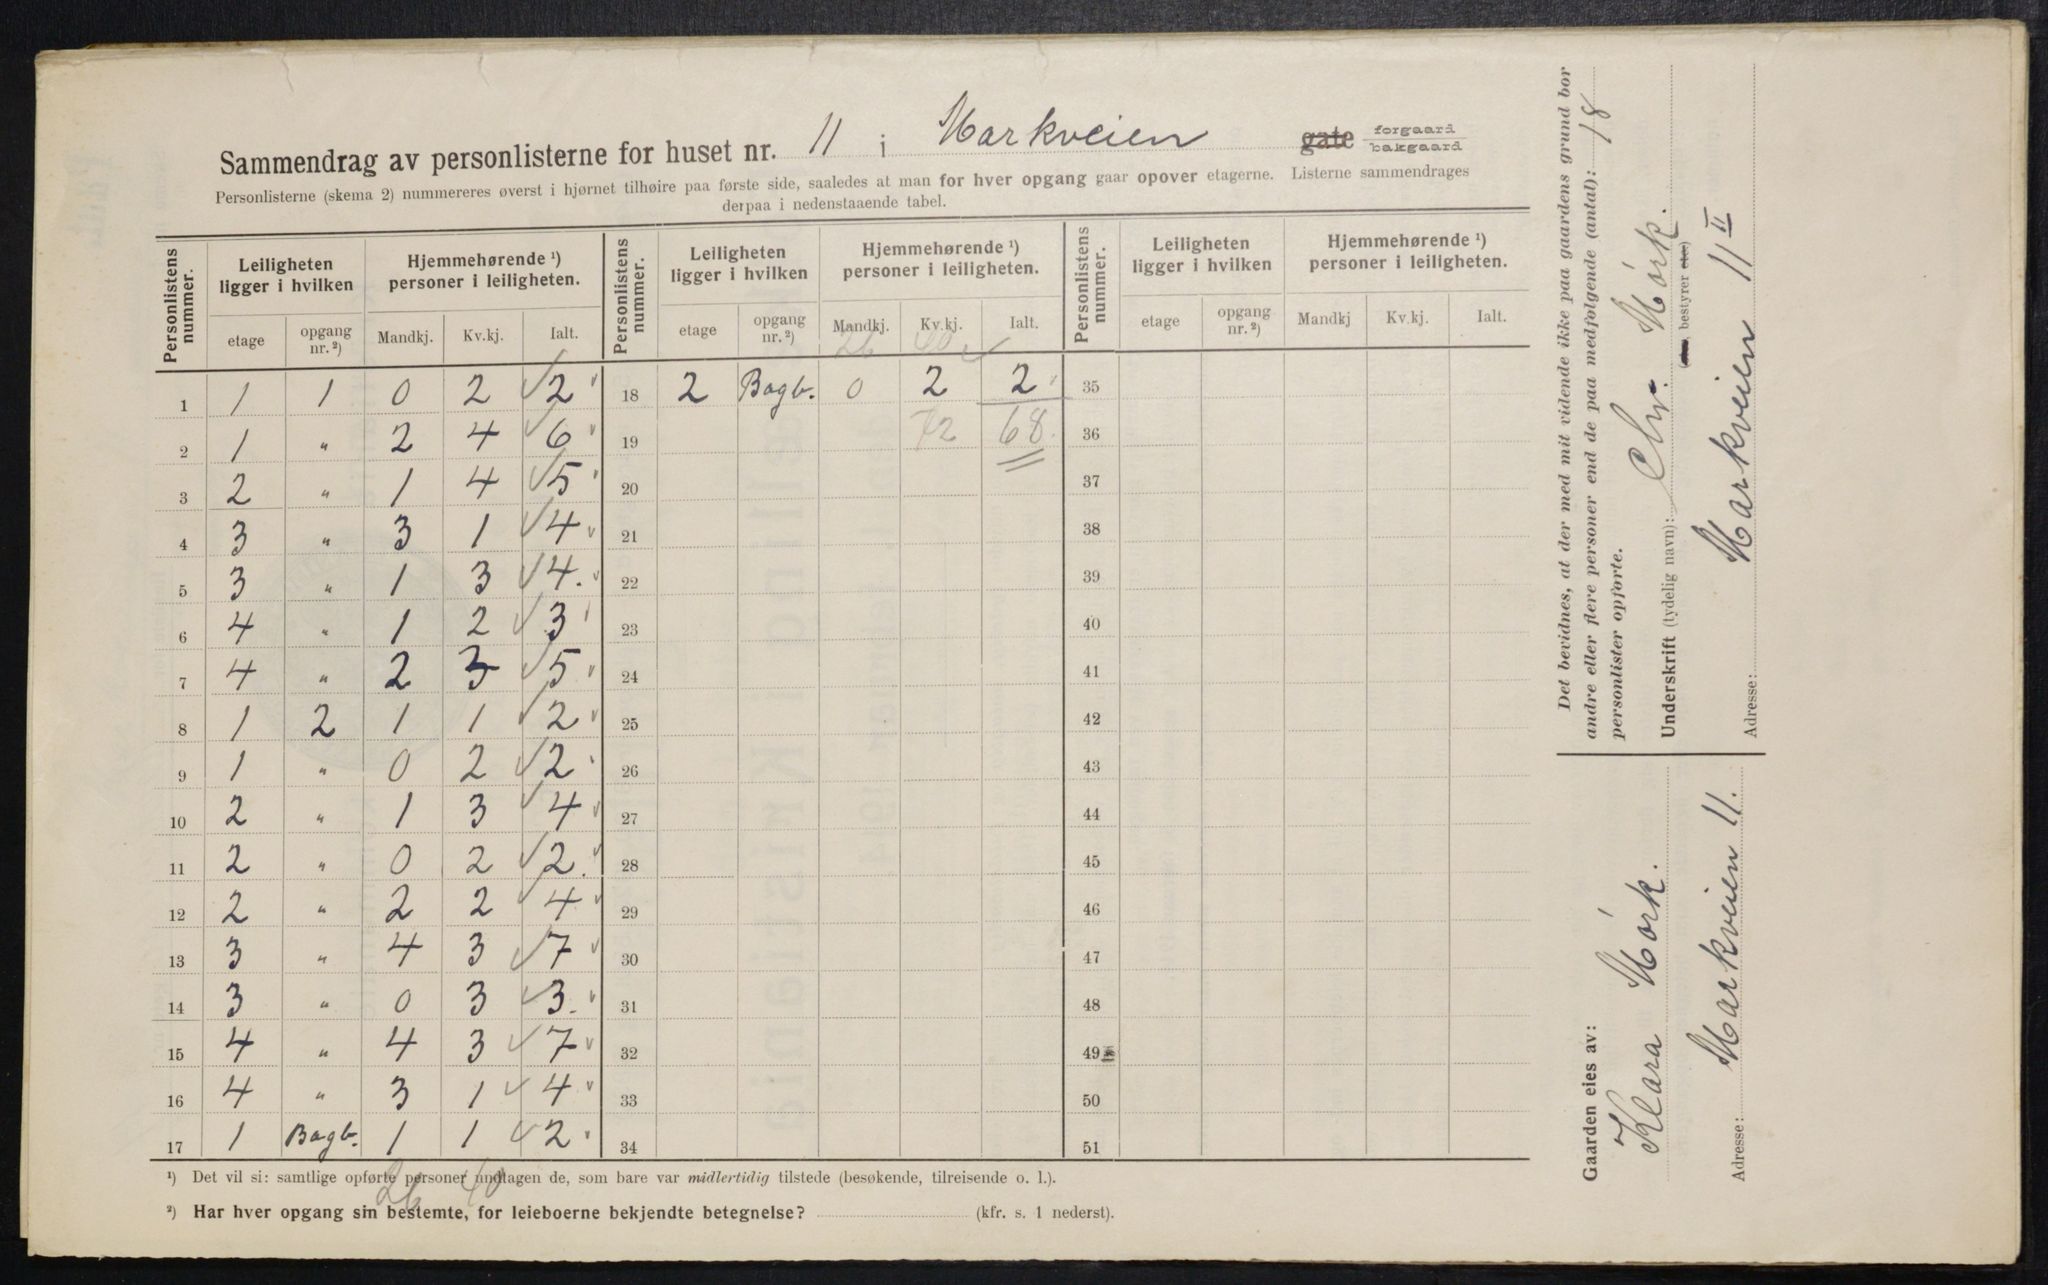 Sammendrag av personlisterne for huset nr. 11 i Markveien gate forgaard bakgaard
Personlisterne (skema 2) nummereres øverst i hjørnet tilhøire paa første side, saaledes at man for hver opgang gaar opover etagerne. Listerne sammendrages
derpaa i nedenstaaende tabel.
Personlistens nummer. Leiligheten ligger i hvilken Hjemmehørende ¹) personer i leiligheten. Personlistens nummer. Leiligheten ligger i hvilken Hjemmehørende ¹) personer i leiligheten. Personlistens nummer. Leiligheten ligger i hvilken Hjemmehørende ¹) personer i leiligheten.
etage opgang nr. ²) Mandkj. Kv.kj. Ialt. etage opgang nr. ²) Mandkj. Kv.kj. Ialt. etage opgang nr. ²) Mandkj Kv.kj. Ialt.
26 40
1 1 1 0 2 √ 2 18 2 Bagb. 0 2 2 35
2 1 " 2 4 √ 6 19 72 68. 36
3 2 " 1 4 √ 5 20 37
4 3 " 3 1 √ 4 21 38
5 3 " 1 3 √ 4. 22 39
6 4 " 1 2 √ 3 23 40
7 4 " 2 3 √ 5 24 41
8 1 2 1 1 √ 2 25 42
9 1 " 0 2 √ 2 26 43
10 2 " 1 3 √ 4 27 44
11 2 " 0 2 √ 2. 28 45
12 2 " 2 2 √ 4 29 46
13 3 " 4 3 √ 7 30 47
14 3 " 0 3 √ 3. 31 48
15 4 " 4 3 √ 7 32 49
16 4 " 3 1 √ 4 33 50
17 1 Bagb. 1 1 √ 2 34 51
26 40
¹) Det vil si: samtlige opførte personer undtagen de, som bare var midlertidig tilstede (besøkende, tilreisende o. l.).
²) Har hver opgang sin bestemte, for leieboerne bekjendte betegnelse? (kfr. s. 1 nederst).
Det bevidnes, at der med mit vidende ikke paa gaardens grund bor
andre eller flere personer end de paa medfølgende (antal): 18
personlister opførte.
Underskrift (tydelig navn): Chr. Mørk.
bestyrer etc)
Adresse: Markveien 11 II
Gaarden eies av:
Klara Mørk.
Adresse: Markveien 11.